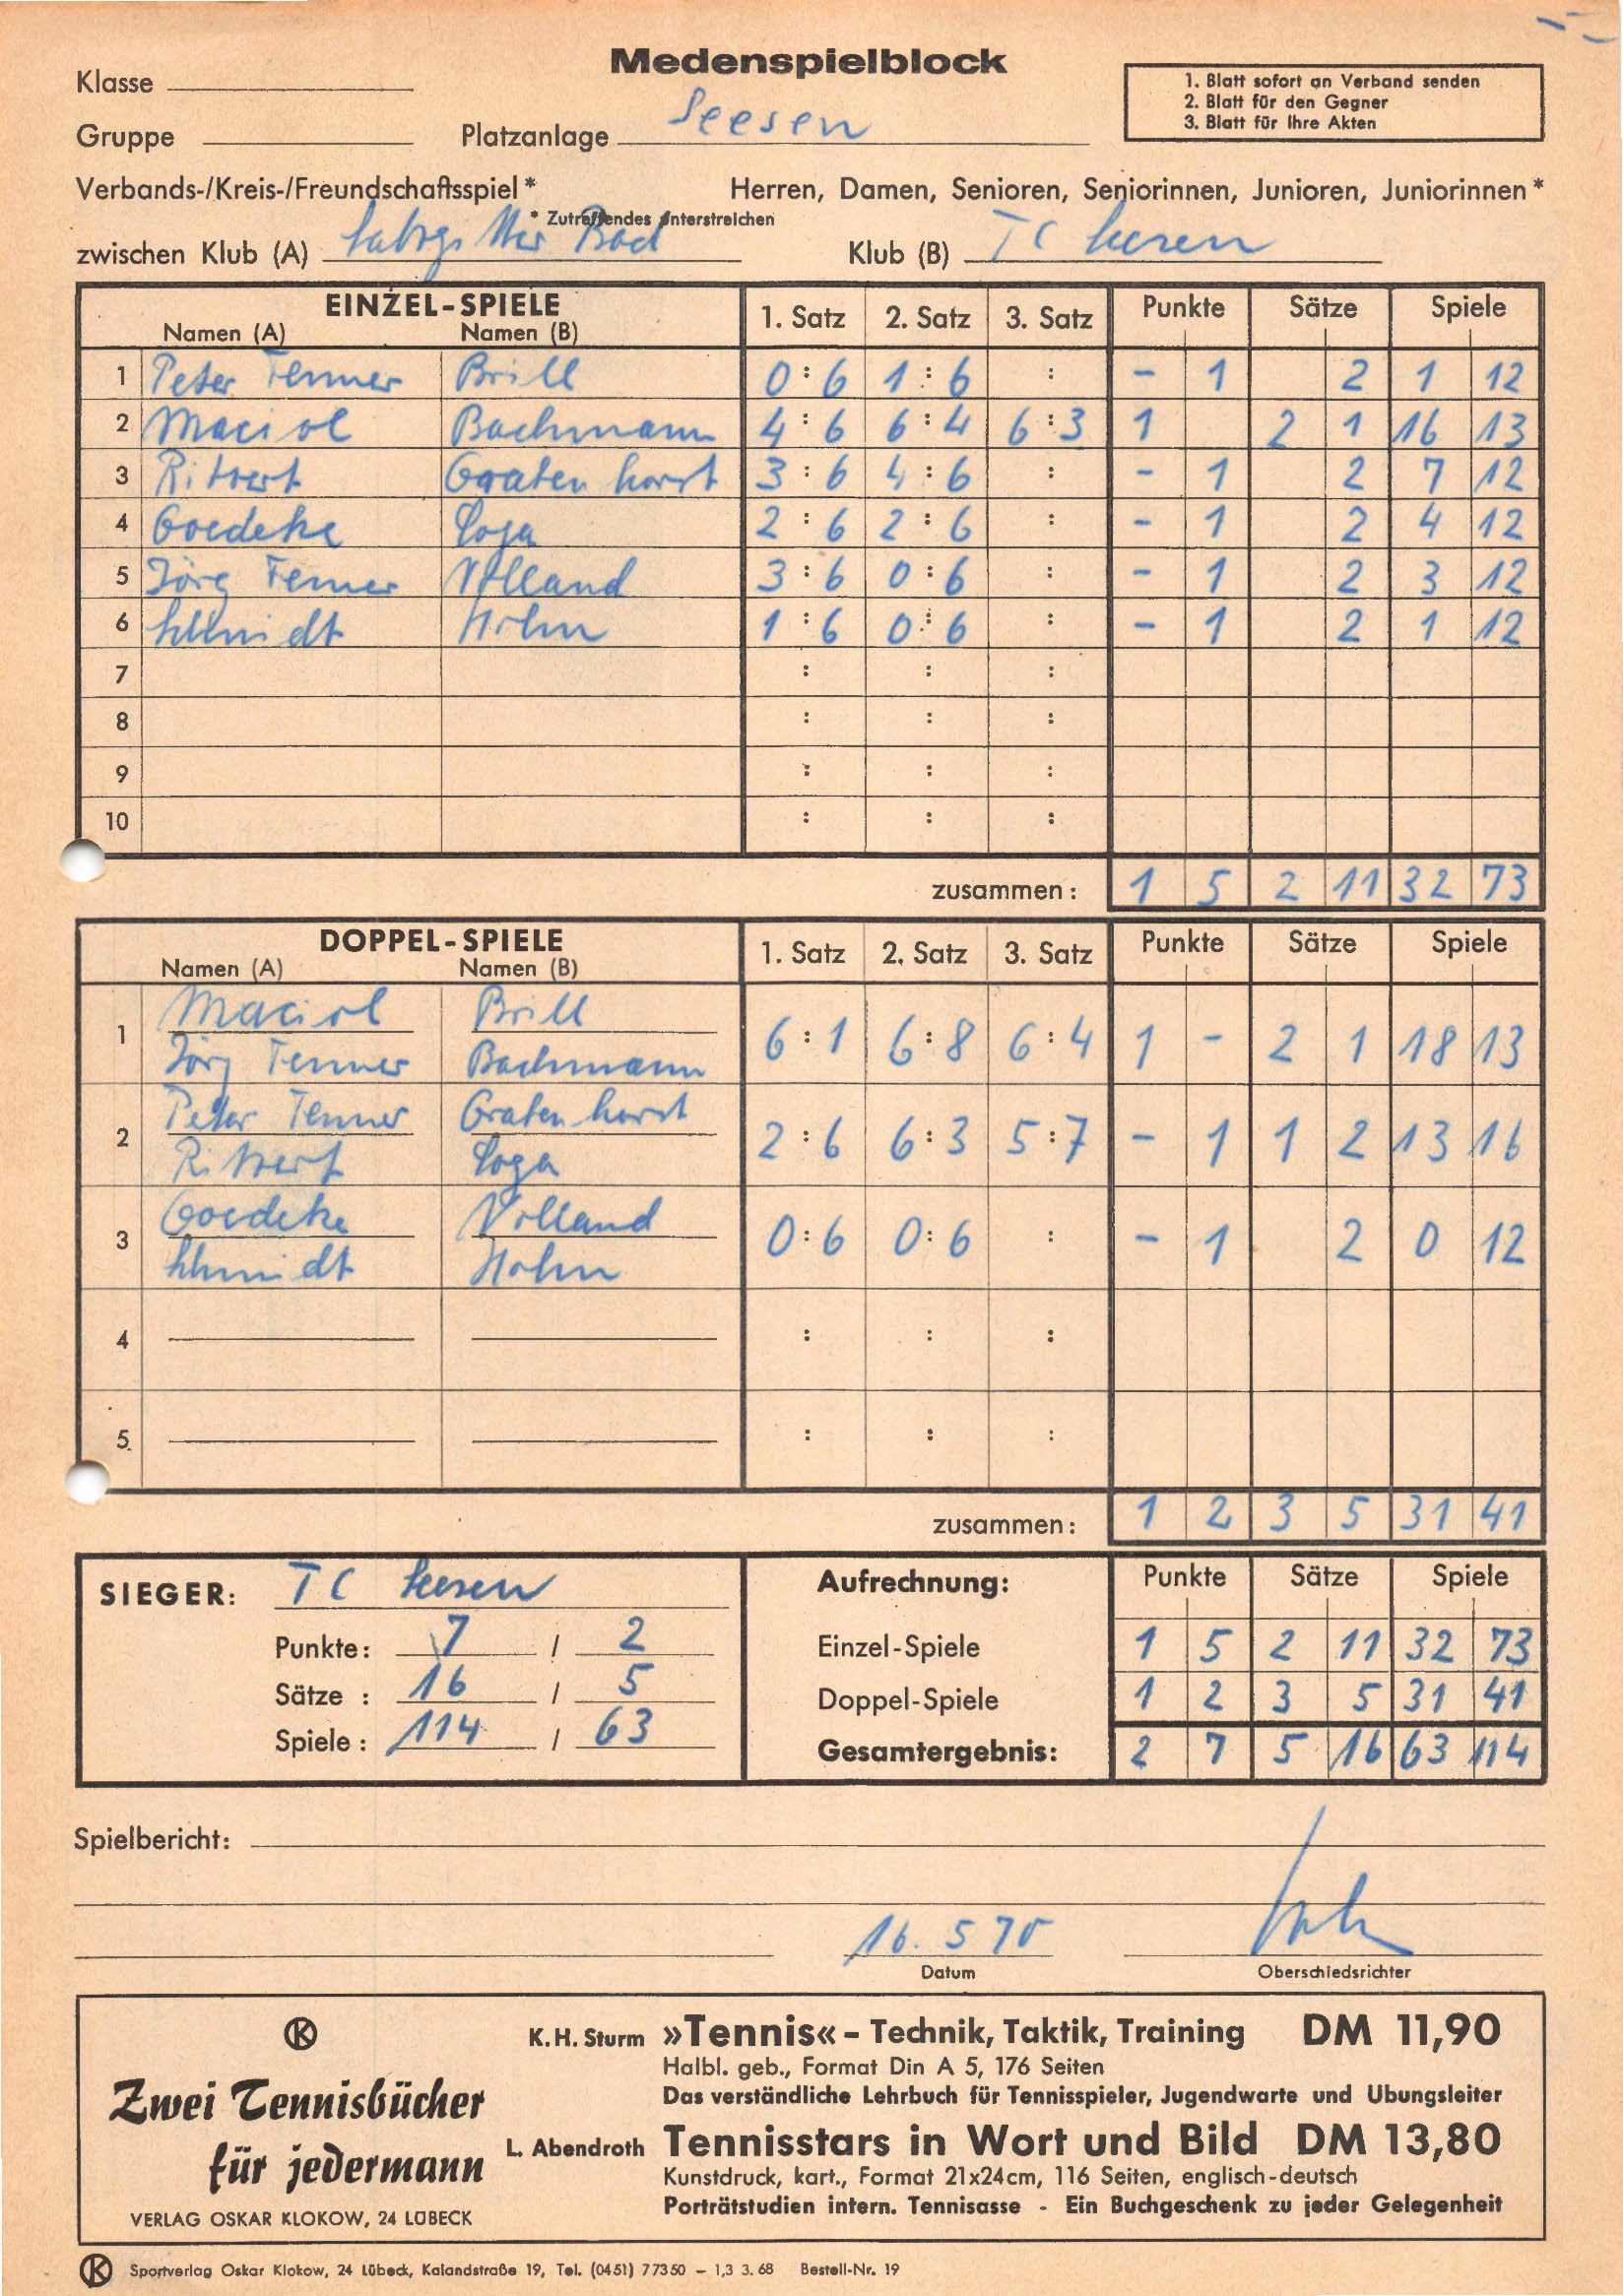 Medenspielblock
Klasse
1. Blatt sofort an Verband senden
2. Blatt für den Gegner
3. Blatt für Ihre Akten
Gruppe Platzanlage Seesen
Verbands-/Kreis-/Freundschaftsspiel * Herren, Damen, Senioren, Seniorinnen, Junioren, Juniorinnen *
* Zutreffendes unterstreichen
zwischen Klub (A) Salzgitter Bad Klub (B) TC Seesen
EINZEL-SPIELE 1. Satz 2. Satz 3. Satz Punkte Sätze Spiele
Namen (A) Namen (B)
1 Peter Fenner Brill 0:6 1:6 : - 1 2 1 12
2 Maciol Bachmann 4:6 6:4 6:3 1 2 1 16 13
3 Rittert Gratenhorst 3:6 4:6 : - 1 2 7 12
4 Goedeke Loga 2:6 2:6 : - 1 2 4 12
5 Jörg Fenner Volland 3:6 0:6 : - 1 2 3 12
6 Schmidt Hohn 1:6 0:6 : - 1 2 1 12
7 : : :
8 : : :
9 : : :
10 : : :
zusammen: 1 5 2 11 32 73
DOPPEL-SPIELE 1. Satz 2. Satz 3. Satz Punkte Sätze Spiele
Namen (A) Namen (B)
Maciol Brill
1 6:1 6:8 6:4 1 - 2 1 18 13
Jörg Fenner Bachmann
Peter Fenner Gratenhorst
2 2:6 6:3 5:7 - 1 1 2 13 16
Rittert Loga
Goedeke Volland
3 0:6 0:6 : - 1 2 0 12
Schmidt Hohn
4 : : :
5. : : :
zusammen: 1 2 3 5 31 41
SIEGER: TC Seesen Aufrechnung: Punkte Sätze Spiele
Punkte: 7 / 2 Einzel-Spiele 1 5 2 11 32 73
Sätze : 16 / 5 Doppel-Spiele 1 2 3 5 31 41
Spiele : 114 / 63 Gesamtergebnis: 2 7 5 16 63 114
Spielbericht:
16. 5 70
Datum Oberschiedsrichter
K
Zwei Tennisbücher
für jedermann
VERLAG OSKAR KLOKOW, 24 LÜBECK
K. H. Sturm »Tennis« – Technik, Taktik, Training DM 11,90
Halbl. geb., Format Din A 5, 176 Seiten
Das verständliche Lehrbuch für Tennisspieler, Jugendwarte und Übungsleiter
L. Abendroth Tennisstars in Wort und Bild DM 13,80
Kunstdruck, kart., Format 21x24cm, 116 Seiten, englisch-deutsch
Porträtstudien intern. Tennisasse - Ein Buchgeschenk zu jeder Gelegenheit
K Sportverlag Oskar Klokow, 24 Lübeck, Kalandstraße 19, Tel. (0451) 77350 – 1,3 3. 68 Bestell-Nr. 19